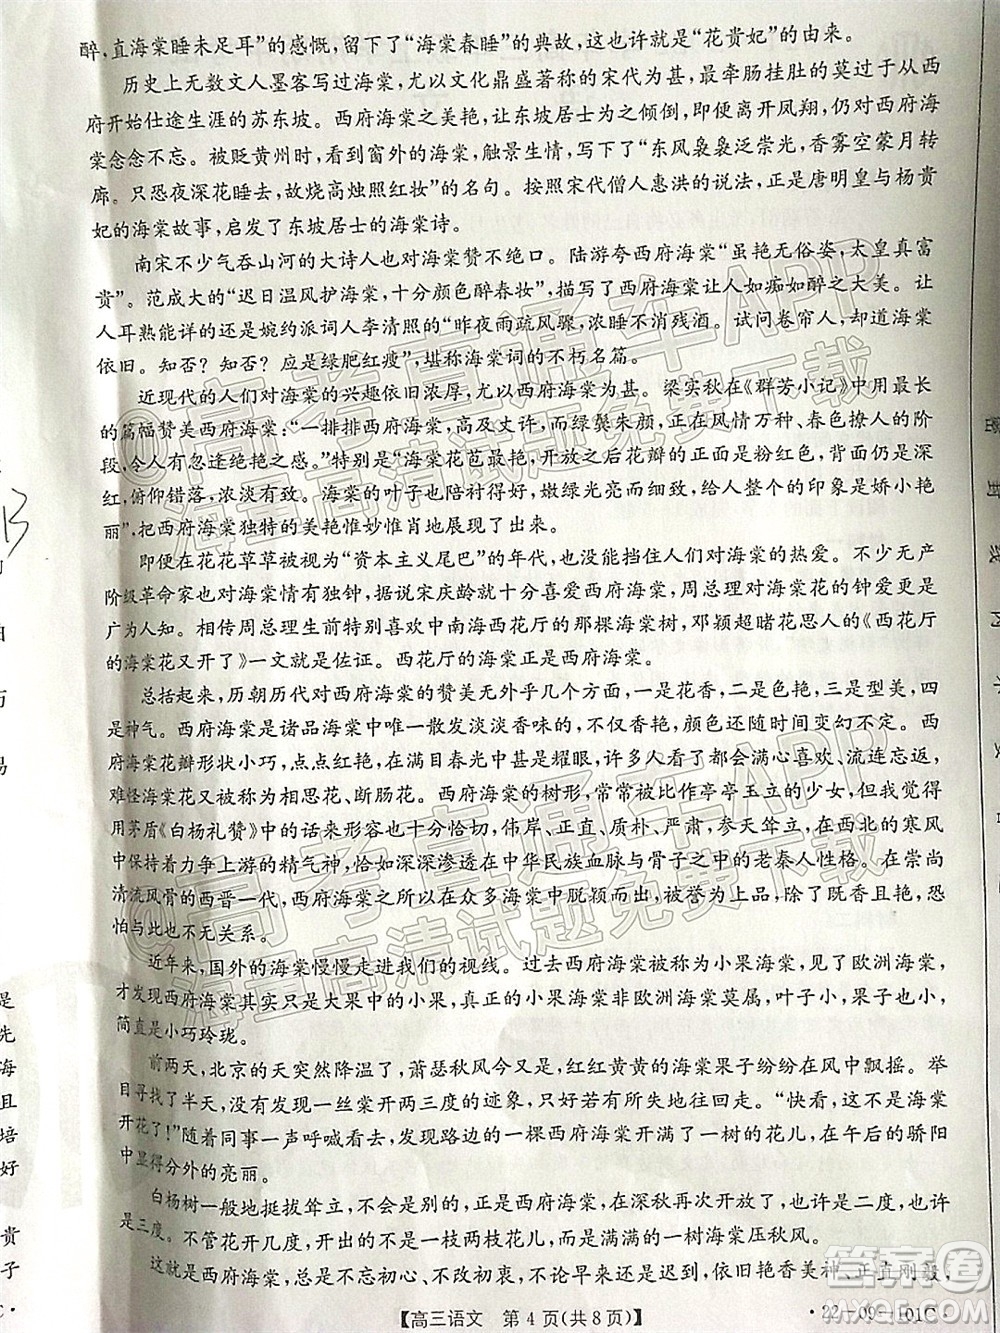 醉,直海棠睡未足耳”的感慨,留下了“海棠春睡”的典故,这也许就是“花贵妃”的由来。
历史上无数文人墨客写过海棠,尤以文化鼎盛著称的宋代为甚,最牵肠挂肚的莫过于从西
府开始仕途生涯的苏东坡。西府海棠之美艳,让东坡居士为之倾倒,即便离开凤翔,仍对西府海
棠念念不忘。被贬黄州时,看到窗外的海棠,触景生情,写下了“东风袅袅泛崇光,香雾空蒙月转
廊。只恐夜深花睡去,故烧高烛照红妆”的名句。按照宋代僧人惠洪的说法,正是唐明皇与杨贵
妃的海棠故事,启发了东坡居士的海棠诗。
南宋不少气吞山河的大诗人也对海棠赞不绝口。陆游夸西府海棠“虽艳无俗姿,太皇真富
贵”。范成大的“迟日温风护海棠,十分颜色醉春妆”,描写了西府海棠让人如痴如醉之大美。让
人耳熟能详的还是婉约派词人李清照的“昨夜雨疏风骤,浓睡不消残酒。试问卷帘人,却道海棠
依旧。知否?知否?应是绿肥红瘦”,堪称海棠词的不朽名篇。
近现代的人们对海棠的兴趣依旧浓厚,尤以西府海棠为甚。梁实秋在《群芳小记》中用最长
的篇幅赞美西府海棠:“一排排西府海棠,高及丈许,而绿鬓朱颜,正在风情万种、春色撩人的阶
段,令人有忽逢绝艳之感。”特别是“海棠花苞最艳,开放之后花瓣的正面是粉红色,背面仍是深
红,俯仰错落,浓淡有致。海棠的叶子也陪衬得好,嫩绿光亮而细致。给人整个的印象是娇小艳
丽”,把西府海棠独特的美艳惟妙惟肖地展现了出来。
即便在花花草草被视为“资本主义尾巴”的年代,也没能挡住人们对海棠的热爱。不少无产
阶级革命家也对海棠情有独钟,宋庆龄就十分喜爱西府海棠,周总理对海棠花的钟爱更是
广为人知。相传周总理生前特别喜欢中南海西花厅的那棵海棠树,邓颖超睹花思人的《西花厅
的海棠花又开了》一文就是佐证。西花厅的海棠正是西府海棠。
总括起来,历朝历代对西府海棠的赞美无外乎几个方面,一是花香,二是色艳,三是型美,四
是神气。西府海棠是诸品海棠中唯一散发淡淡香味的,不仅香艳,颜色还随时间变幻不定。西
府海棠花瓣形状小巧,点点红斑,在满目春光中甚是耀眼,许多人看了都会满心喜欢、流连忘返,
难怪海棠花又被称为相思花、断肠花。西府海棠的树形,常常被比作亭亭玉立的少女,但我觉得
用茅盾《白杨礼赞》中的话来形容也十分恰切,伟岸、正直、质朴、严肃,参天耸立,在西北的寒风
中保持着力争上游的精气神,恰如深深渗透在中华民族血脉与骨子之中的老秦人性格。在崇尚
清流风骨的西晋一代,西府海棠从诸多海棠中脱颖而出,一举被誉为上品,除了既香且艳,恐
怕与此也不无关系。
近年来,国外的海棠慢慢走进我们的视线。过去西府海棠被称为小果海棠,见了欧洲海棠,
才发现西府海棠其实只是大果中的小果,真正的小果海棠非欧洲海棠莫属,叶子小,果子也小,
简直是小巧玲珑。
前两天,北京的天突然降温了,萧瑟秋风今又是,红红黄黄的海棠果子纷纷在风中飘摇。我
寻找了半天,没有发现一丝棠开两三度的迹象,只好若有所失地往回走。“快看,这不是海棠
开花了!”随着同事一声呼喊看去,发现路边的一棵西府海棠开满了一树的花儿,在午后的骄阳
中显得分外的亮丽。
白杨树一般地挺拔耸立,不会是别的,正是西府海棠,在深秋再次开放了,也许是二度,也许
是三度。不管花开几度,开出的不是一枝两枝花儿,而是满满的一树海棠压秋风。
这就是西府海棠,不忘初心、不改初衷,不论是早还是迟,依旧香艳美神、正直刚毅,
【高三语文 第4页(共8页)】
·22-09-101C·
密
封
线
内
不
要
是
先
海
且
培
好
贵
子
C·
答案圈